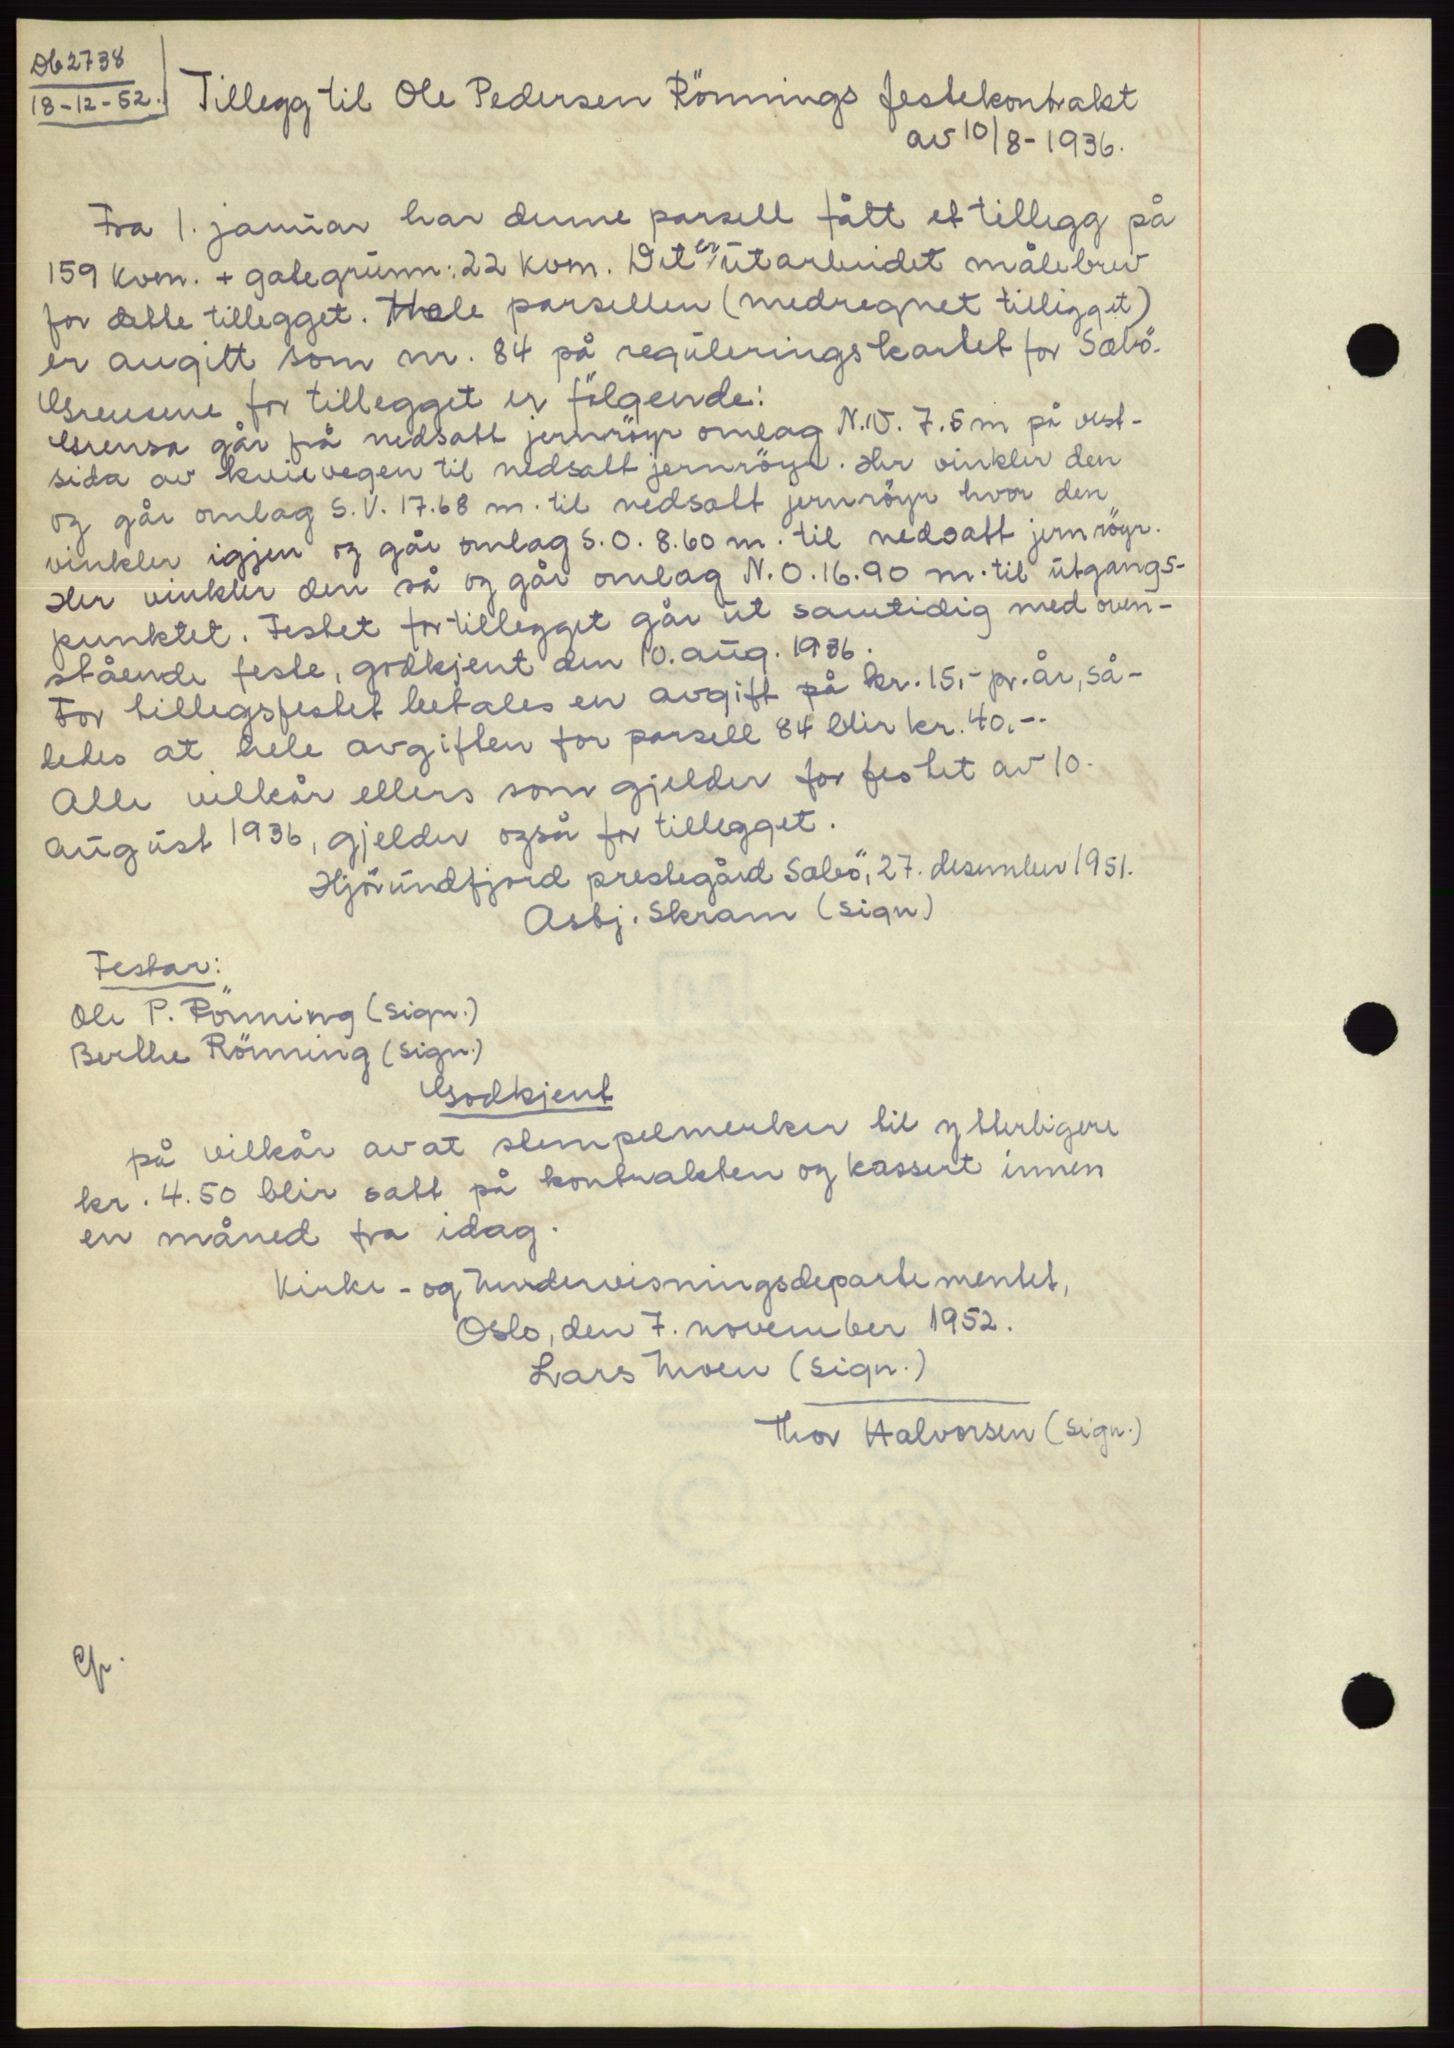 Db 2738
18-12-52.
Tillegg til Ole Pedersen Rönnings festekontrakt
av 10/8-1936.
Fra 1. januar har denne parsell fått et tillegg på
159 kvm. + gategrunn: 22 kvm. Det er utarbeidet målebrev
for dette tillegget. Hele parsellen (medregnet tillegget)
er avgitt som nr. 84 på reguleringskartet for Sæbö.
Grensene for tillegget er fölgende:
Grensa går frå nedsatt jernröyr omlag N.V. 7.5 m på vest-
sida av kvievegen til nedsatt jernröyr. Her vinkler den
og går omlag S.V. 17.68 m. til nedsatt jernröyr hvor den
vinkler igjen og går omlag S.O. 8.60 m. til nedsatt jernröyr.
Her vinkler den så og går omlag N.O. 16.90 m. til utgangs-
punktet. Festet for tillegget går ut samtidig med oven-
stående feste, godkjent den 10. aug. 1936.
For tilleggsfestet betales en avgift på kr. 15,- pr. år, så-
ledes at hele avgiften for parsell 84 blir kr. 40,--
Alle vilkår ellers som gjelder for festet av 10.
august 1936, gjelder også for tillegget.
Hjörundfjord prestegård Sæbö, 27. desember 1951.
Asbj. Skram (sign)
Festar:
Ole P. Rönning (sign.)
Berthe Rönning (sign.)
Godkjent
på vilkår av at stempelmerker til ytterligere
kr. 4.50 blir satt på kontrakten og kassert innen
en måned fra idag.
Kirke- og Undervisningsdepartementet,
Oslo, den 7. november 1952.
Lars Moen (sign.)
Thor Halvorsen (sign.)